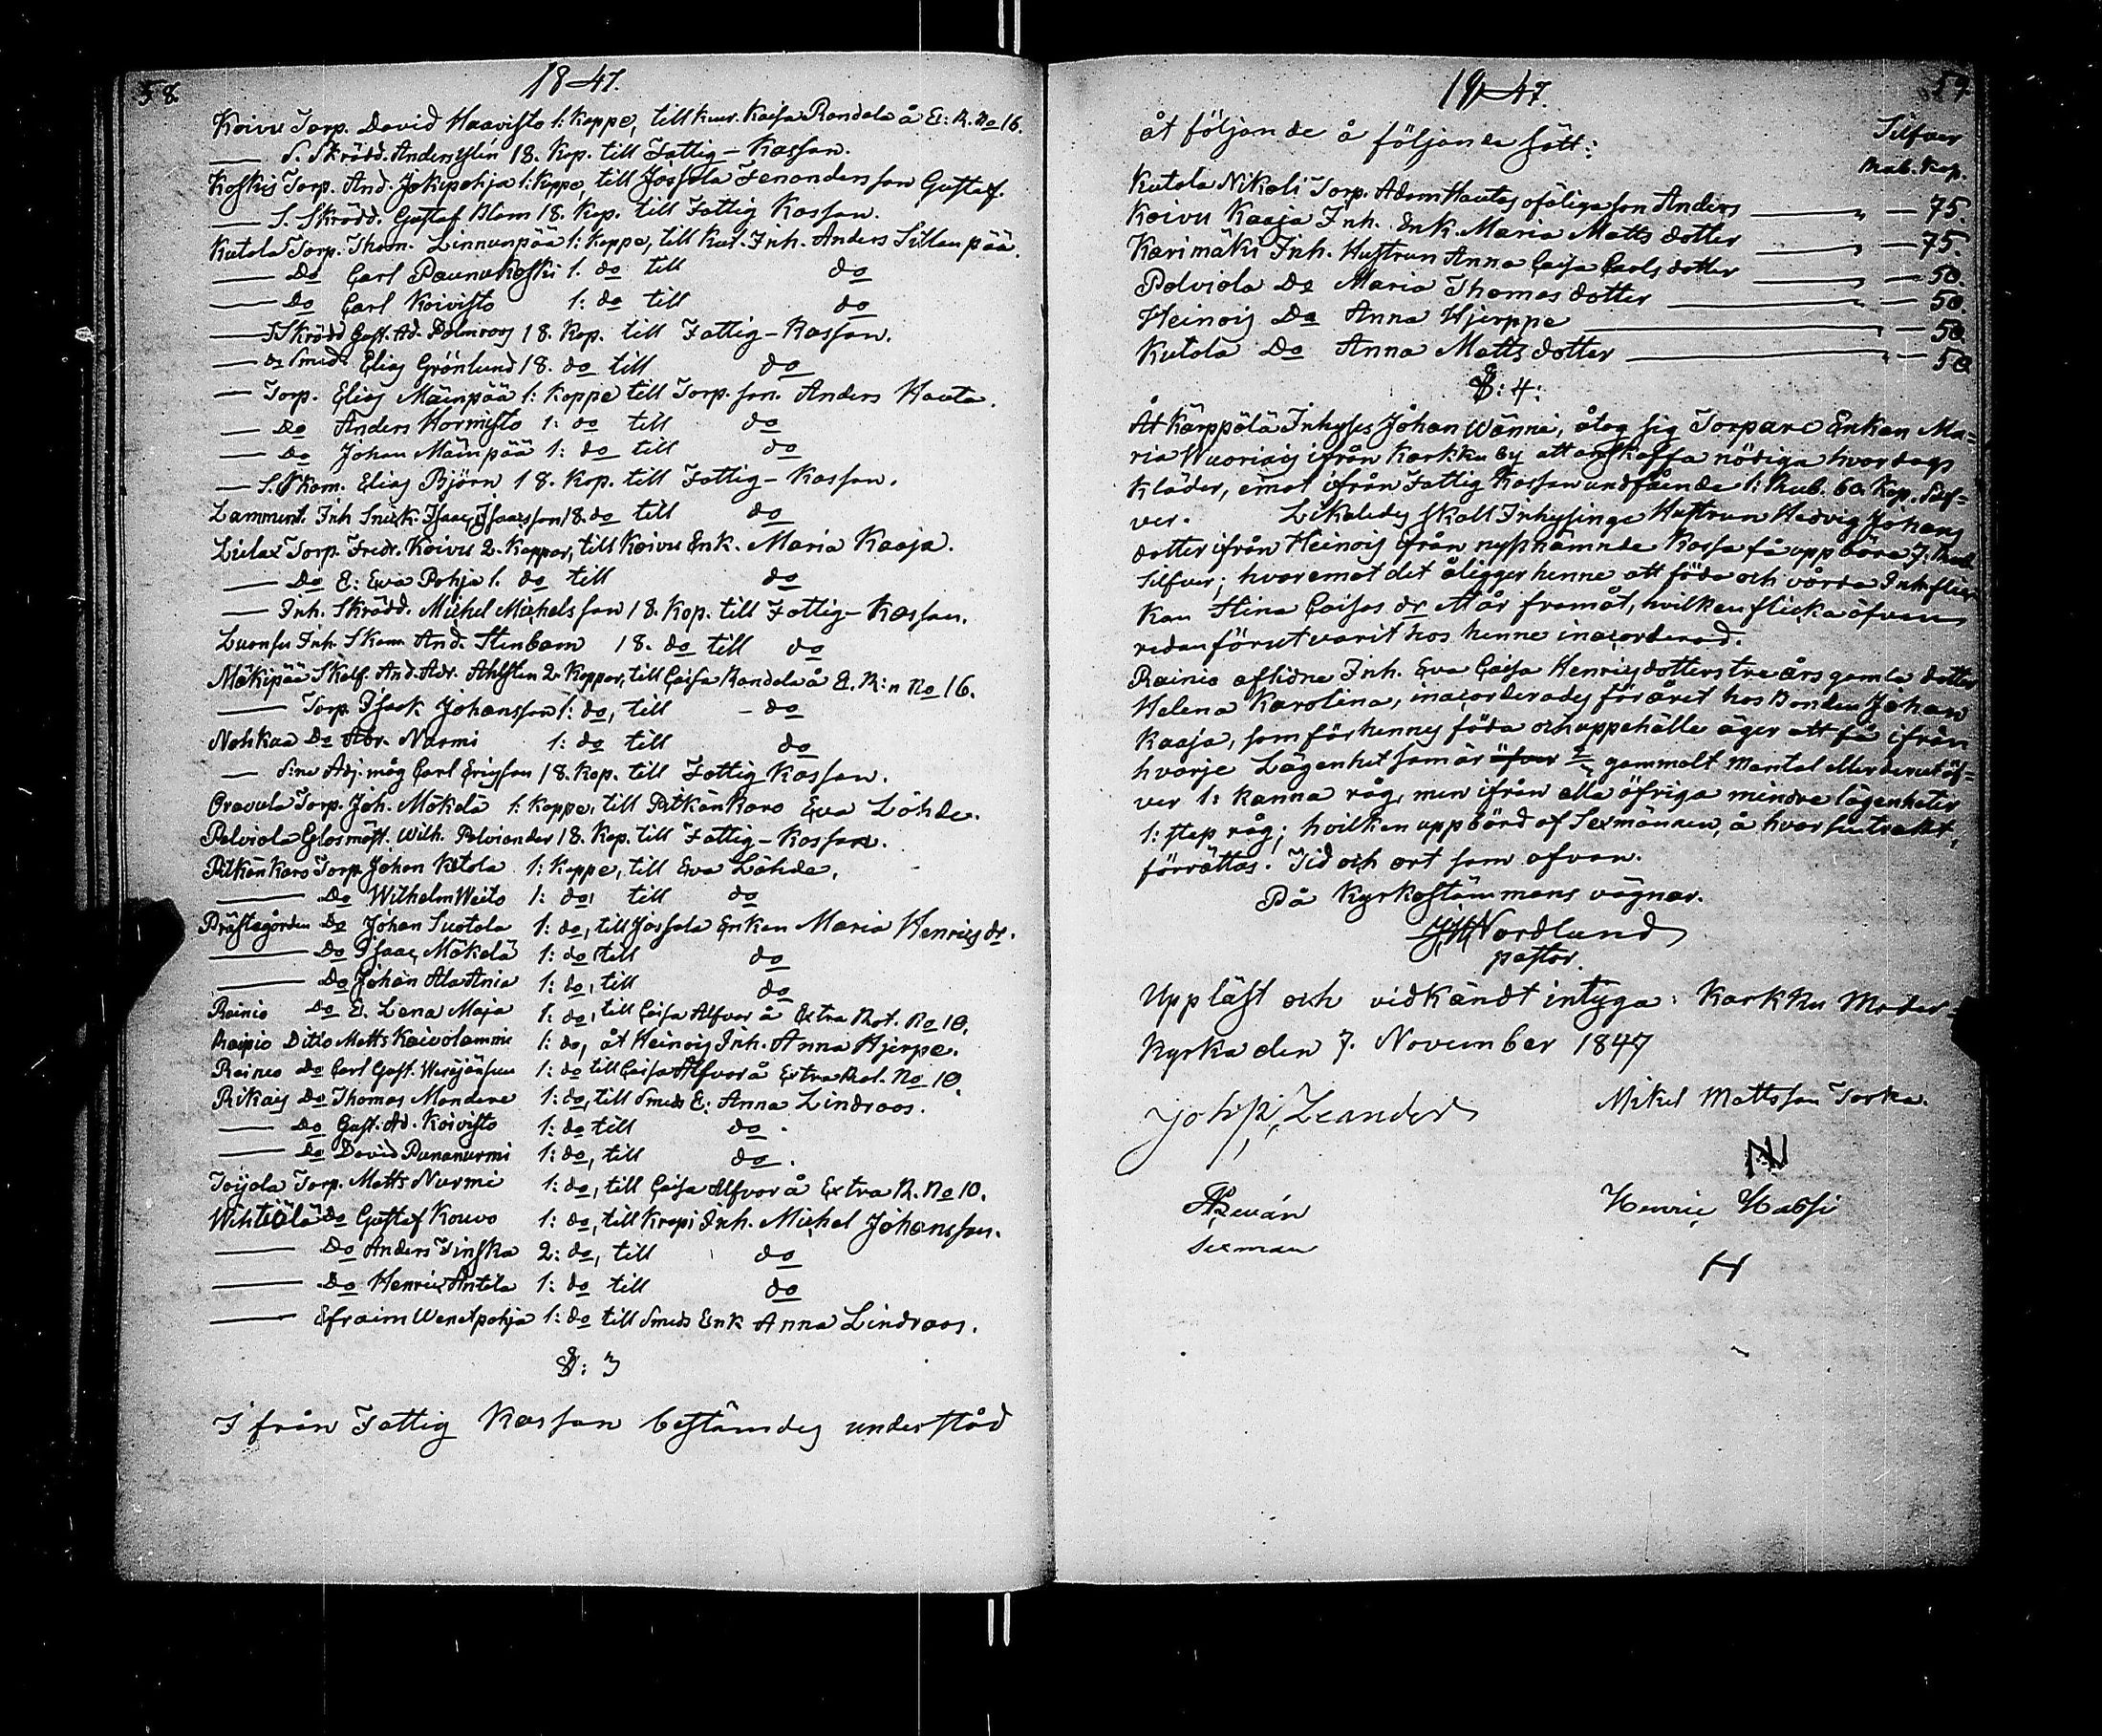 58.
1847.
Koivu Torp. David Haavisto 1: Kappe, till Kuur. Kaisa Randala å E: R. No 16.
— S. Skrädd. Anders 18. Kop. till Fattig-Kassan.
Koskis Torp. And. Jokipohja 1: Kappe, till Jössola Gustaf.
— S. Skrädd. Gustaf Blom 18. Kop. till Fattig Kassan.
Kutala Torp. Thom. Linnunpää 1: Kappe, till Kut. Inh. Anders Sillanpää.
— Do Carl Paunukoski 1. do till do
— Do Carl Koivisto 1: do till do
— S Skrädd Gust. Ad. Palmroos 18. Kop. till Fattig-Kassan.
— Do Smid. Elias Grönlund 18. do till do
— Torp. Elias Mäinpää 1: Kappe till Torp. son. Anders Hauta.
— Do Anders Hormisto 1: do till do
— Do Johan Mäinpää 1: do till do
— S. Skom. Elias Björn 18. Kop. till Fattig-Kassan.
Lamment. Inh Snick. Isaac Isaacsson 18. do till do
Lielax Torp. Fredr. Koivu 2. Kappar, till Koivu Enk. Maria Kaaja.
— Do E: Eva Pohja 1. do till do
— Inh. Skrädd. Michel Michelsson 18. Kop. till Fattig-Kassan.
Luonsu Inh. Skom And. Stenbom 18. do till do
Mäkipää Skolf. And. Adr. Ahlsten 2. Kappar, till Caisa Randala å E. R:n No 16.
— Torp. Isack Johansson 1: do, till - do
Nohkua Do Abr. Nurmi 1: do till do
— S:ne Adj. måg Carl Ericsson 18. Kop. till Fattig Kassan.
Oravula Torp. Joh. Mäkelä 1: Kappe, till Pitkänkaro Eva Löhde.
Palviala Glasmäst. Wilh. Palviander 18. Kop. till Fattig-Kassan.
Pitkänkaro Torp. Johan Ketola 1: Kappe, till Eva Löhde.
— Do Wilhelm Weito 1: do, till do
Prästegården Do Johan Suotala 1: do, till Jössola Enkan Maria Henricsdr.
— Do Isaac Mäkelä 1: do till do
— Do Johan Ala Ania 1: do, till do
Rainio Do E. Lena Maja 1: do, till Caisa Alfvar å Extra Rot. No 10.
Raipio Ditto Matts Kaivolammi 1: do, åt Heinois Inh. Anna Hjerpe.
Rainio Do Carl Gust. 1: do till Caisa Alfvar å Extra Rot. No 10.
Rikais Do Thomas Mandere 1: do, till Smeds E: Anna Lindroos.
— Do Gust. Ad. Koivisto 1: do till do.
— Do David Punanurmi 1: do, till do.
Toijola Torp. Matts Nurmi 1: do, till Caisa Alfvar å Extra R. No 10.
Wihtiälä do Gustaf Kouvo 1: do, till Kropi Inh. Michel Johansson.
— Do Anders Finska 2: do, till do
— Do Henric Antila 1: do till do
— Efraim Wenetpohja 1: do till Smeds Enk Anna Lindroos.
§: 3
Ifrån Fattig Kassan bestämdes understöd
1847.
59
åt följande å följande sätt:
Silfver
Rub. Kop.
Kutala Nikoli Torp. Adam Hautas ofäliga son Anders — " — 75.
Koivu Kaaja Inh. Enk. Maria Matts dotter — " — 75.
Karimäki Inh. Hustrun Anna Caisa Carls dotter — " — 50.
Palviala Do Maria Thomas dotter — " — 50.
Heinois Do Anna Hjerppe — " — 50.
Kutala Do Anna Matts dotter — " — 50
§: 4:
Åt Kärppälä Inhyses Johan Wänni, åtog sig Torpare Enkan Ma=
ria Wuoriais ifrån Karkku by att anskaffa nödiga hvardags
Kläder, emot ifrån Fattig Kassan undfående 1: Rub. 60. Kop. Silf=
ver. Likaledes skall Inhysinge Hustrun Hedvig Johans
dotter ifrån Heinois ifrån nysnämnde Kassa få uppbära 7. Rub
Silfver; hvaremot det åligger henne att föda och vårda Inh. flic
kan Stina Caisas dr Ett år framåt, hvilken flicka äfven
redan förut varit hos henne inacorderad.
Rainio aflidne Inh. Eva Caisa Henrics dotters tre års gamla dotter
Helena Karolina, inacorderades för året hos Bonden Johan
Kaaja, som för hennes föda och uppehälle äger att få ifrån
hvarje Lägenhet som är gammalt mantal eller derutöf=
ver 1: Kanna råg, men ifrån alla öfriga mindre lägenheter
1: stop råg; hvilken uppbörd af Sexmännen, å hvar sin trakt,
förrättas. Tid och ort som ofvan.
På Kyrkostämmans vägnar.
Nordlund
pastor.
Uppläst och vidkändt intyga: Karkku Moder=
Kyrka den 7. November 1847
Leander
Mikel Mattsson Torka.
Sexman
Henric Hassi
H